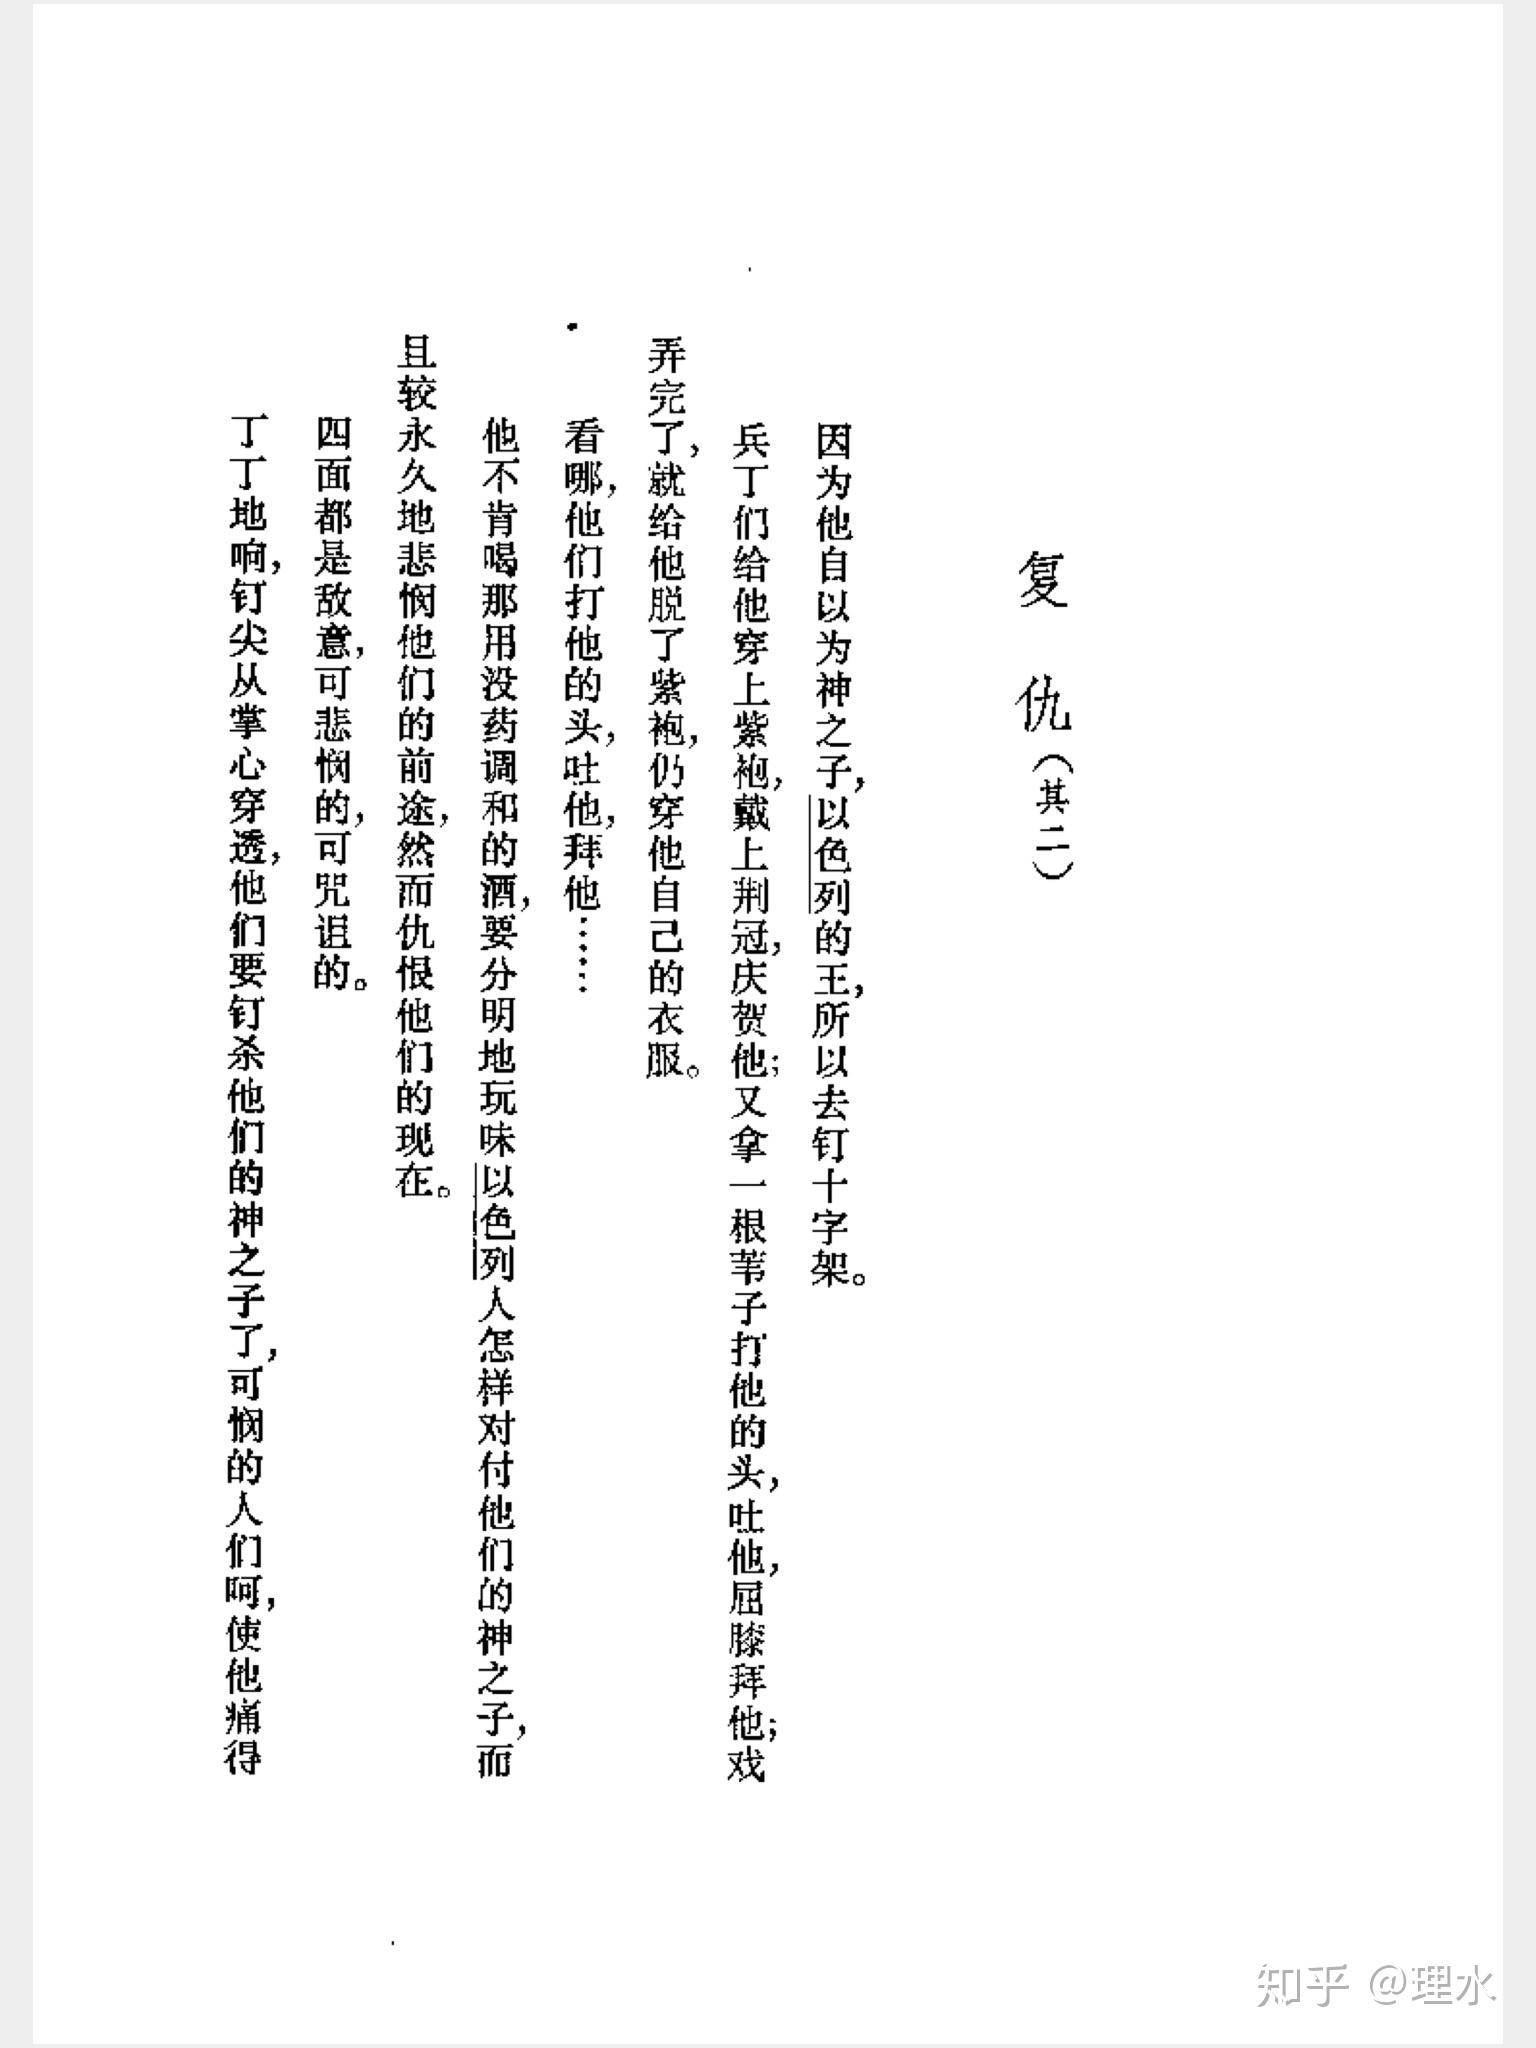 复仇(其二)
因为他自以为神之子，以色列的王，所以去钉十字架。
兵丁们给他穿上紫袍，戴上荆冠，庆贺他；又拿一根苇子打他的头，吐他，屈膝拜他；戏
弄完了，就给他脱了紫袍，仍穿他自己的衣服。
看哪，他们打他的头，吐他，拜他……
他不肯喝那用没药调和的酒，要分明地玩味以色列人怎样对付他们的神之子，而
且较永久地悲悯他们的前途，然而仇恨他们的现在。
四面都是敌意，可悲悯的，可咒诅的。
丁丁地响，钉尖从掌心穿透，他们要钉杀他们的神之子了，可悯的人们呵，使他痛得
知乎 @理水